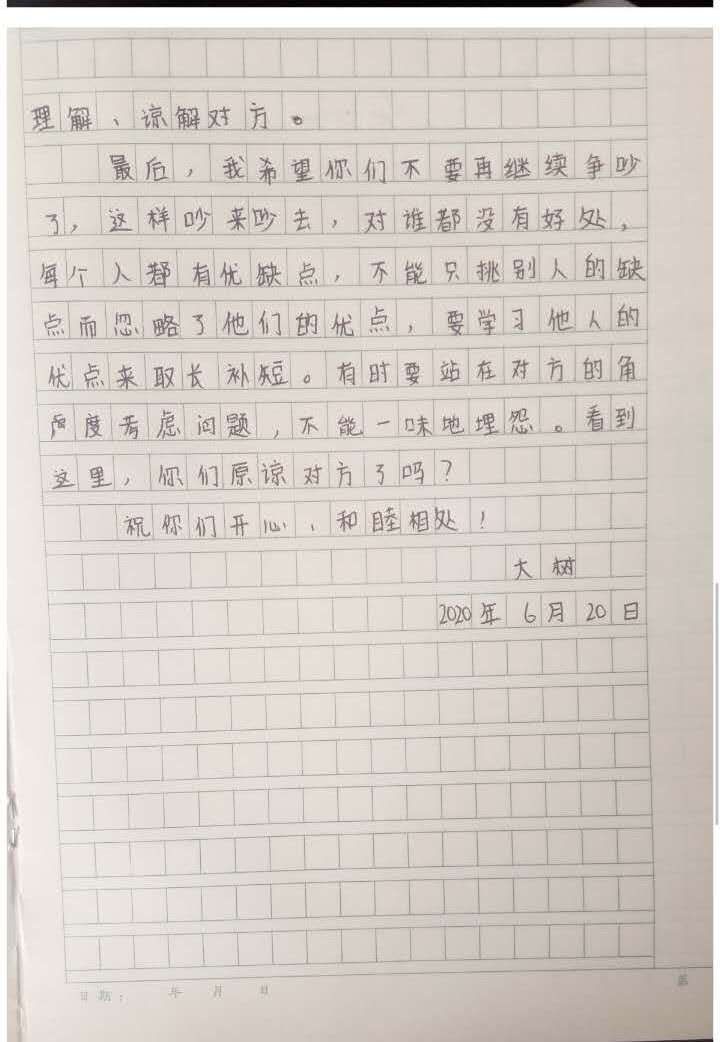 理解、谅解对方。
最后，我希望你们不要再继续争吵
了，这样吵来吵去，对谁都没有好处，
每个人都有优缺点，不能只挑别人的缺
点而忽略了他们的优点，要学习他人的
优点来取长补短。有时要站在对方的角
度考虑问题，不能一味地埋怨。看到
这里，你们原谅对方了吗？
祝你们开心、和睦相处！
大树
2020年6月20日
日期： 年 月 日
第